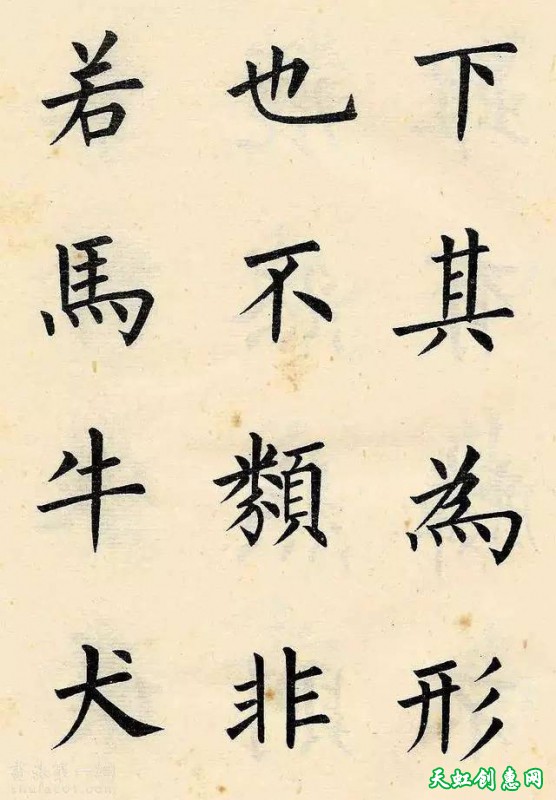 下其為形
也不類非
若馬牛犬
天虹创惠网